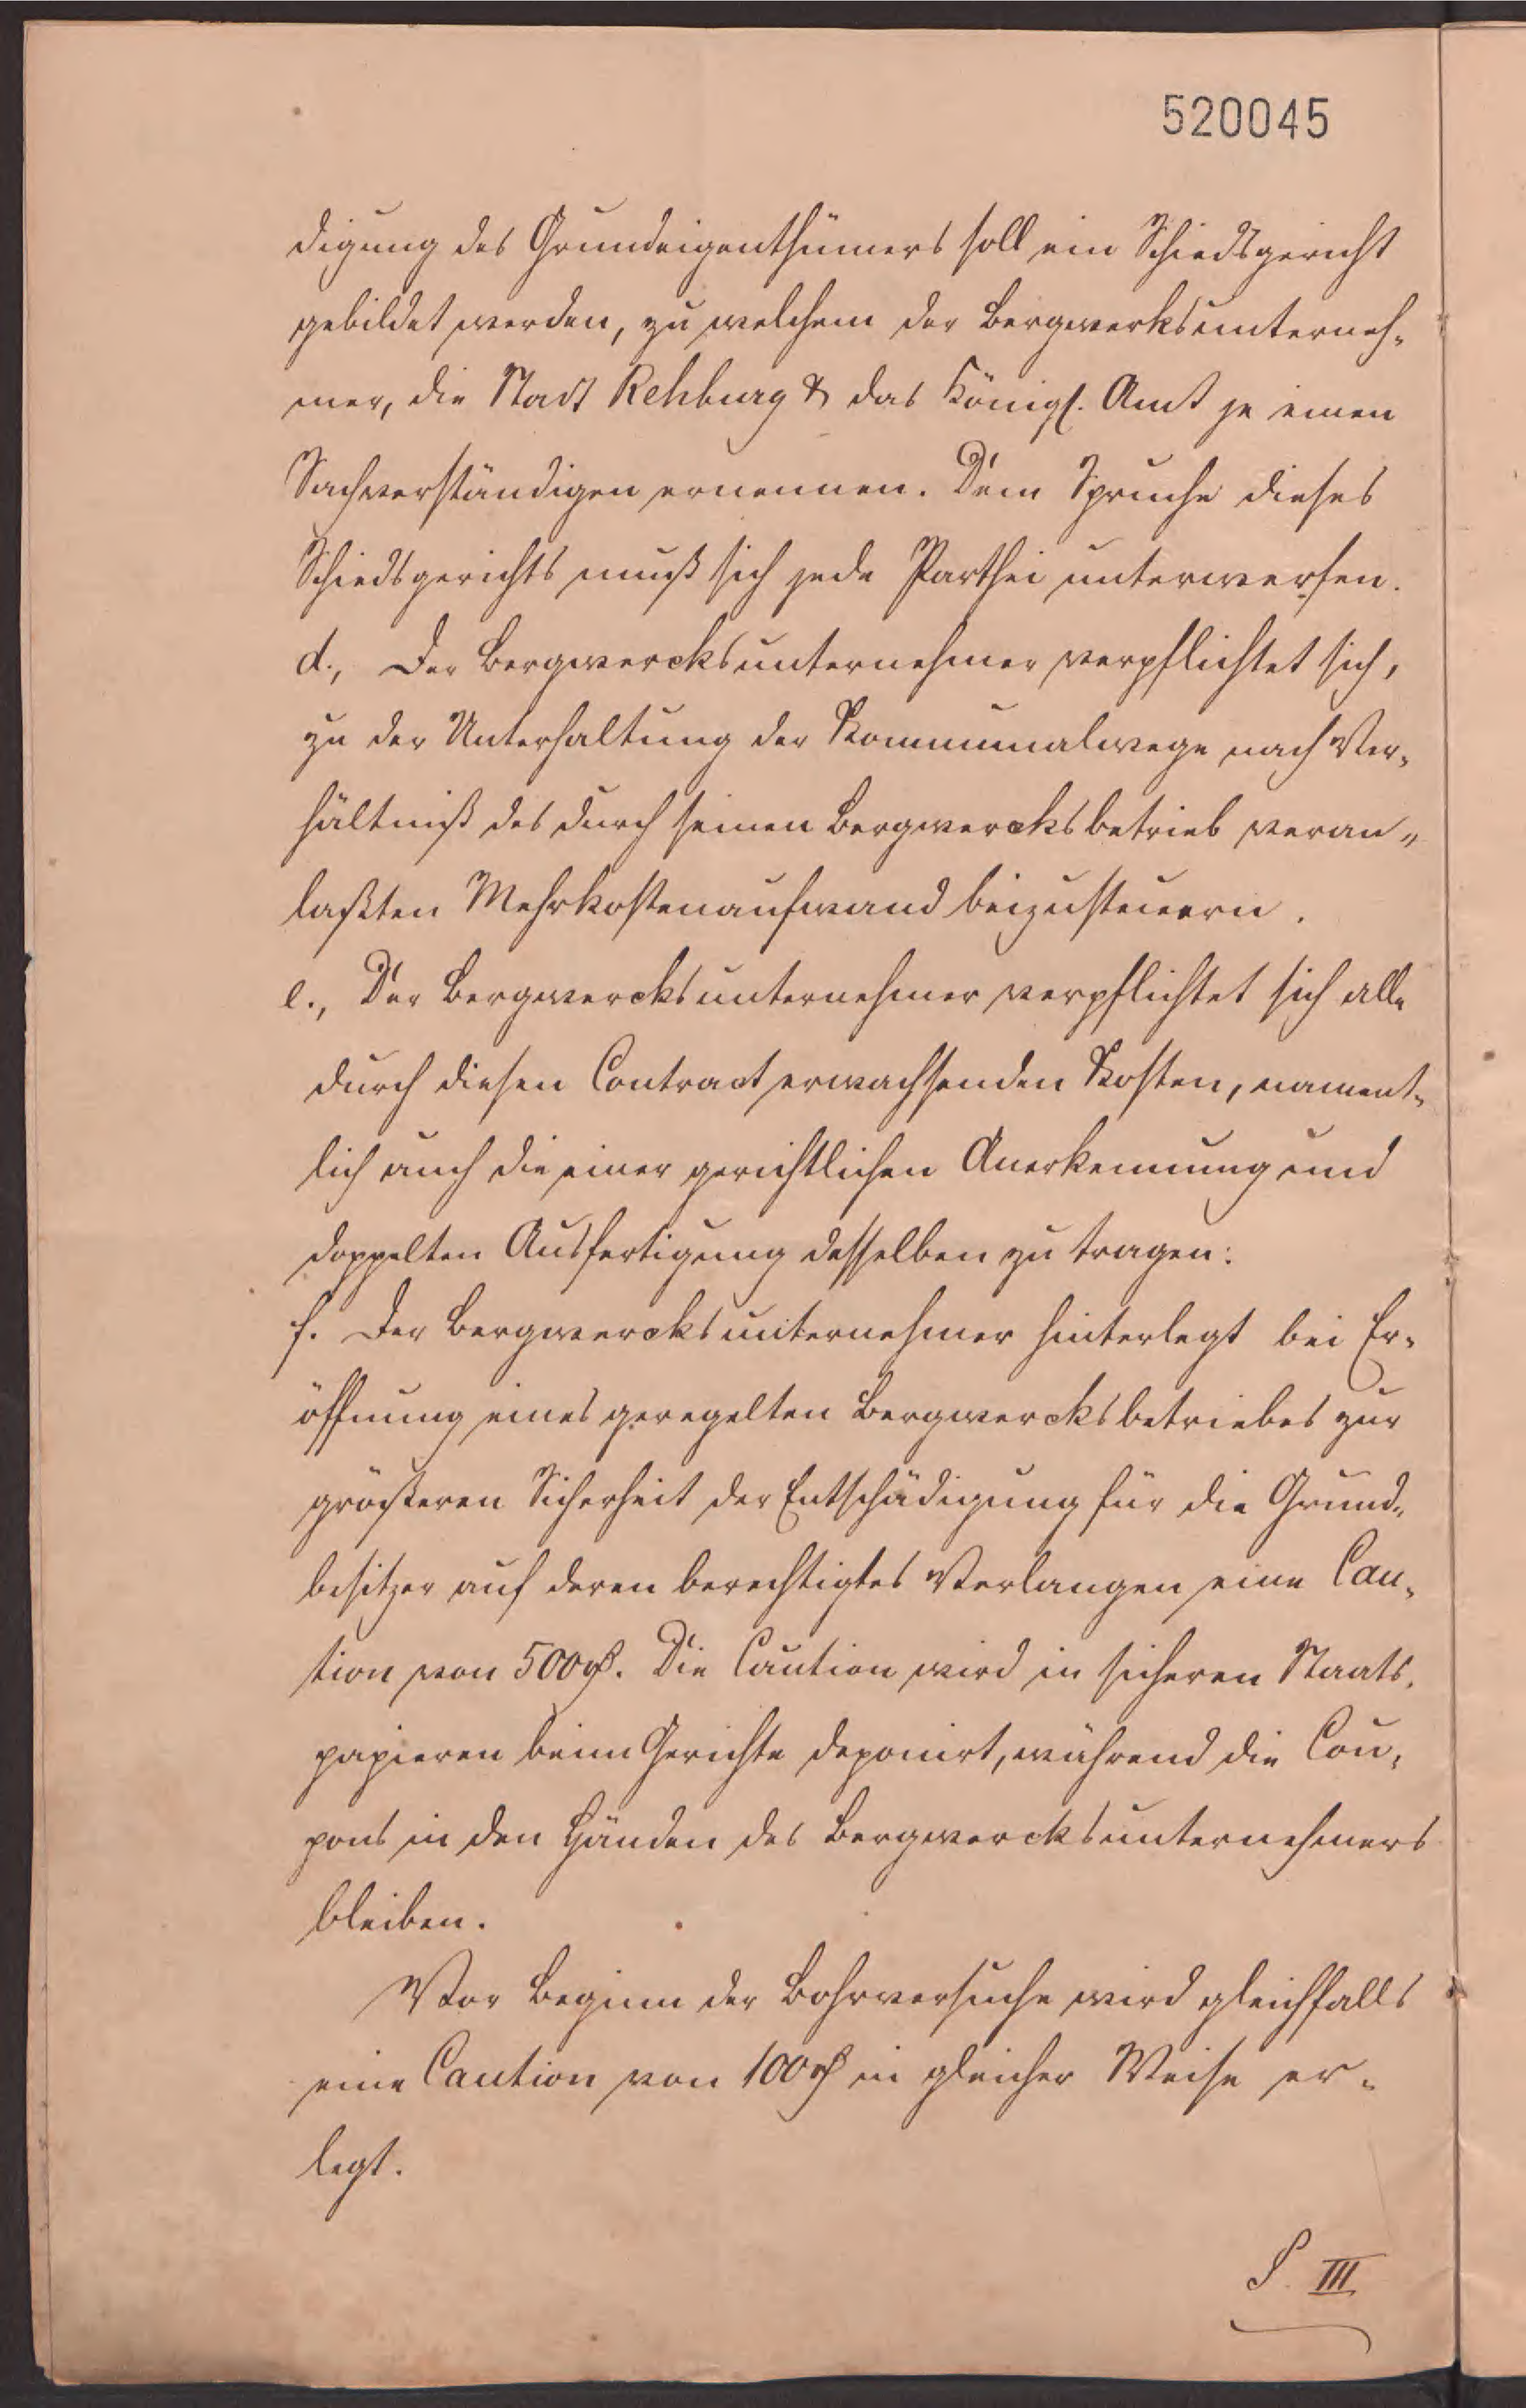 520045
digung des Grundeigenthümers soll ein Schiedsgericht
gebildet werden, zu welchem der Bergwerksunterneh-
mer, die Stadt Rehburg & das Königl. Amt je einen
Sachverständigen ernennen. Dem Spruche dieses
Schiedsgerichts muß sich jede Parthei unterwerfen.
d., Der Bergwercksunternehmer verpflichtet sich,
zu der Unterhaltung der Kommunalwege nach Ver-
hältniß des durch seinen Bergwercksbetrieb veran-
laßten Mehrkostenaufwand beizusteuern.
e., Der Bergwercksunternehmer verpflichtet sich alle
durch diesen Contract erwachsenden Kosten, nament-
lich auch die einer gerichtlichen Anerkennung und
doppelten Ausfertigung desselben zu tragen:
f. Der Bergwercksunternehmer hinterlegt bei Er-
öffnung eines geregelten Bergwercksbetriebes zur
größeren Sicherheit der Entschädigung für die Grund-
besitzer auf deren berechtigtes Verlangen eine Cau-
tion von 500 rℓ. Die Caution wird in sicheren Staats-
papieren beim Gerichte deponirt, während die Cou-
pons in den Händen des Bergwercksunternehmers
bleiben.
Vor Beginn der Bohrversuche wird gleichfalls
eine Caution von 100 rℓ in gleicher Weise er-
legt.
§. III